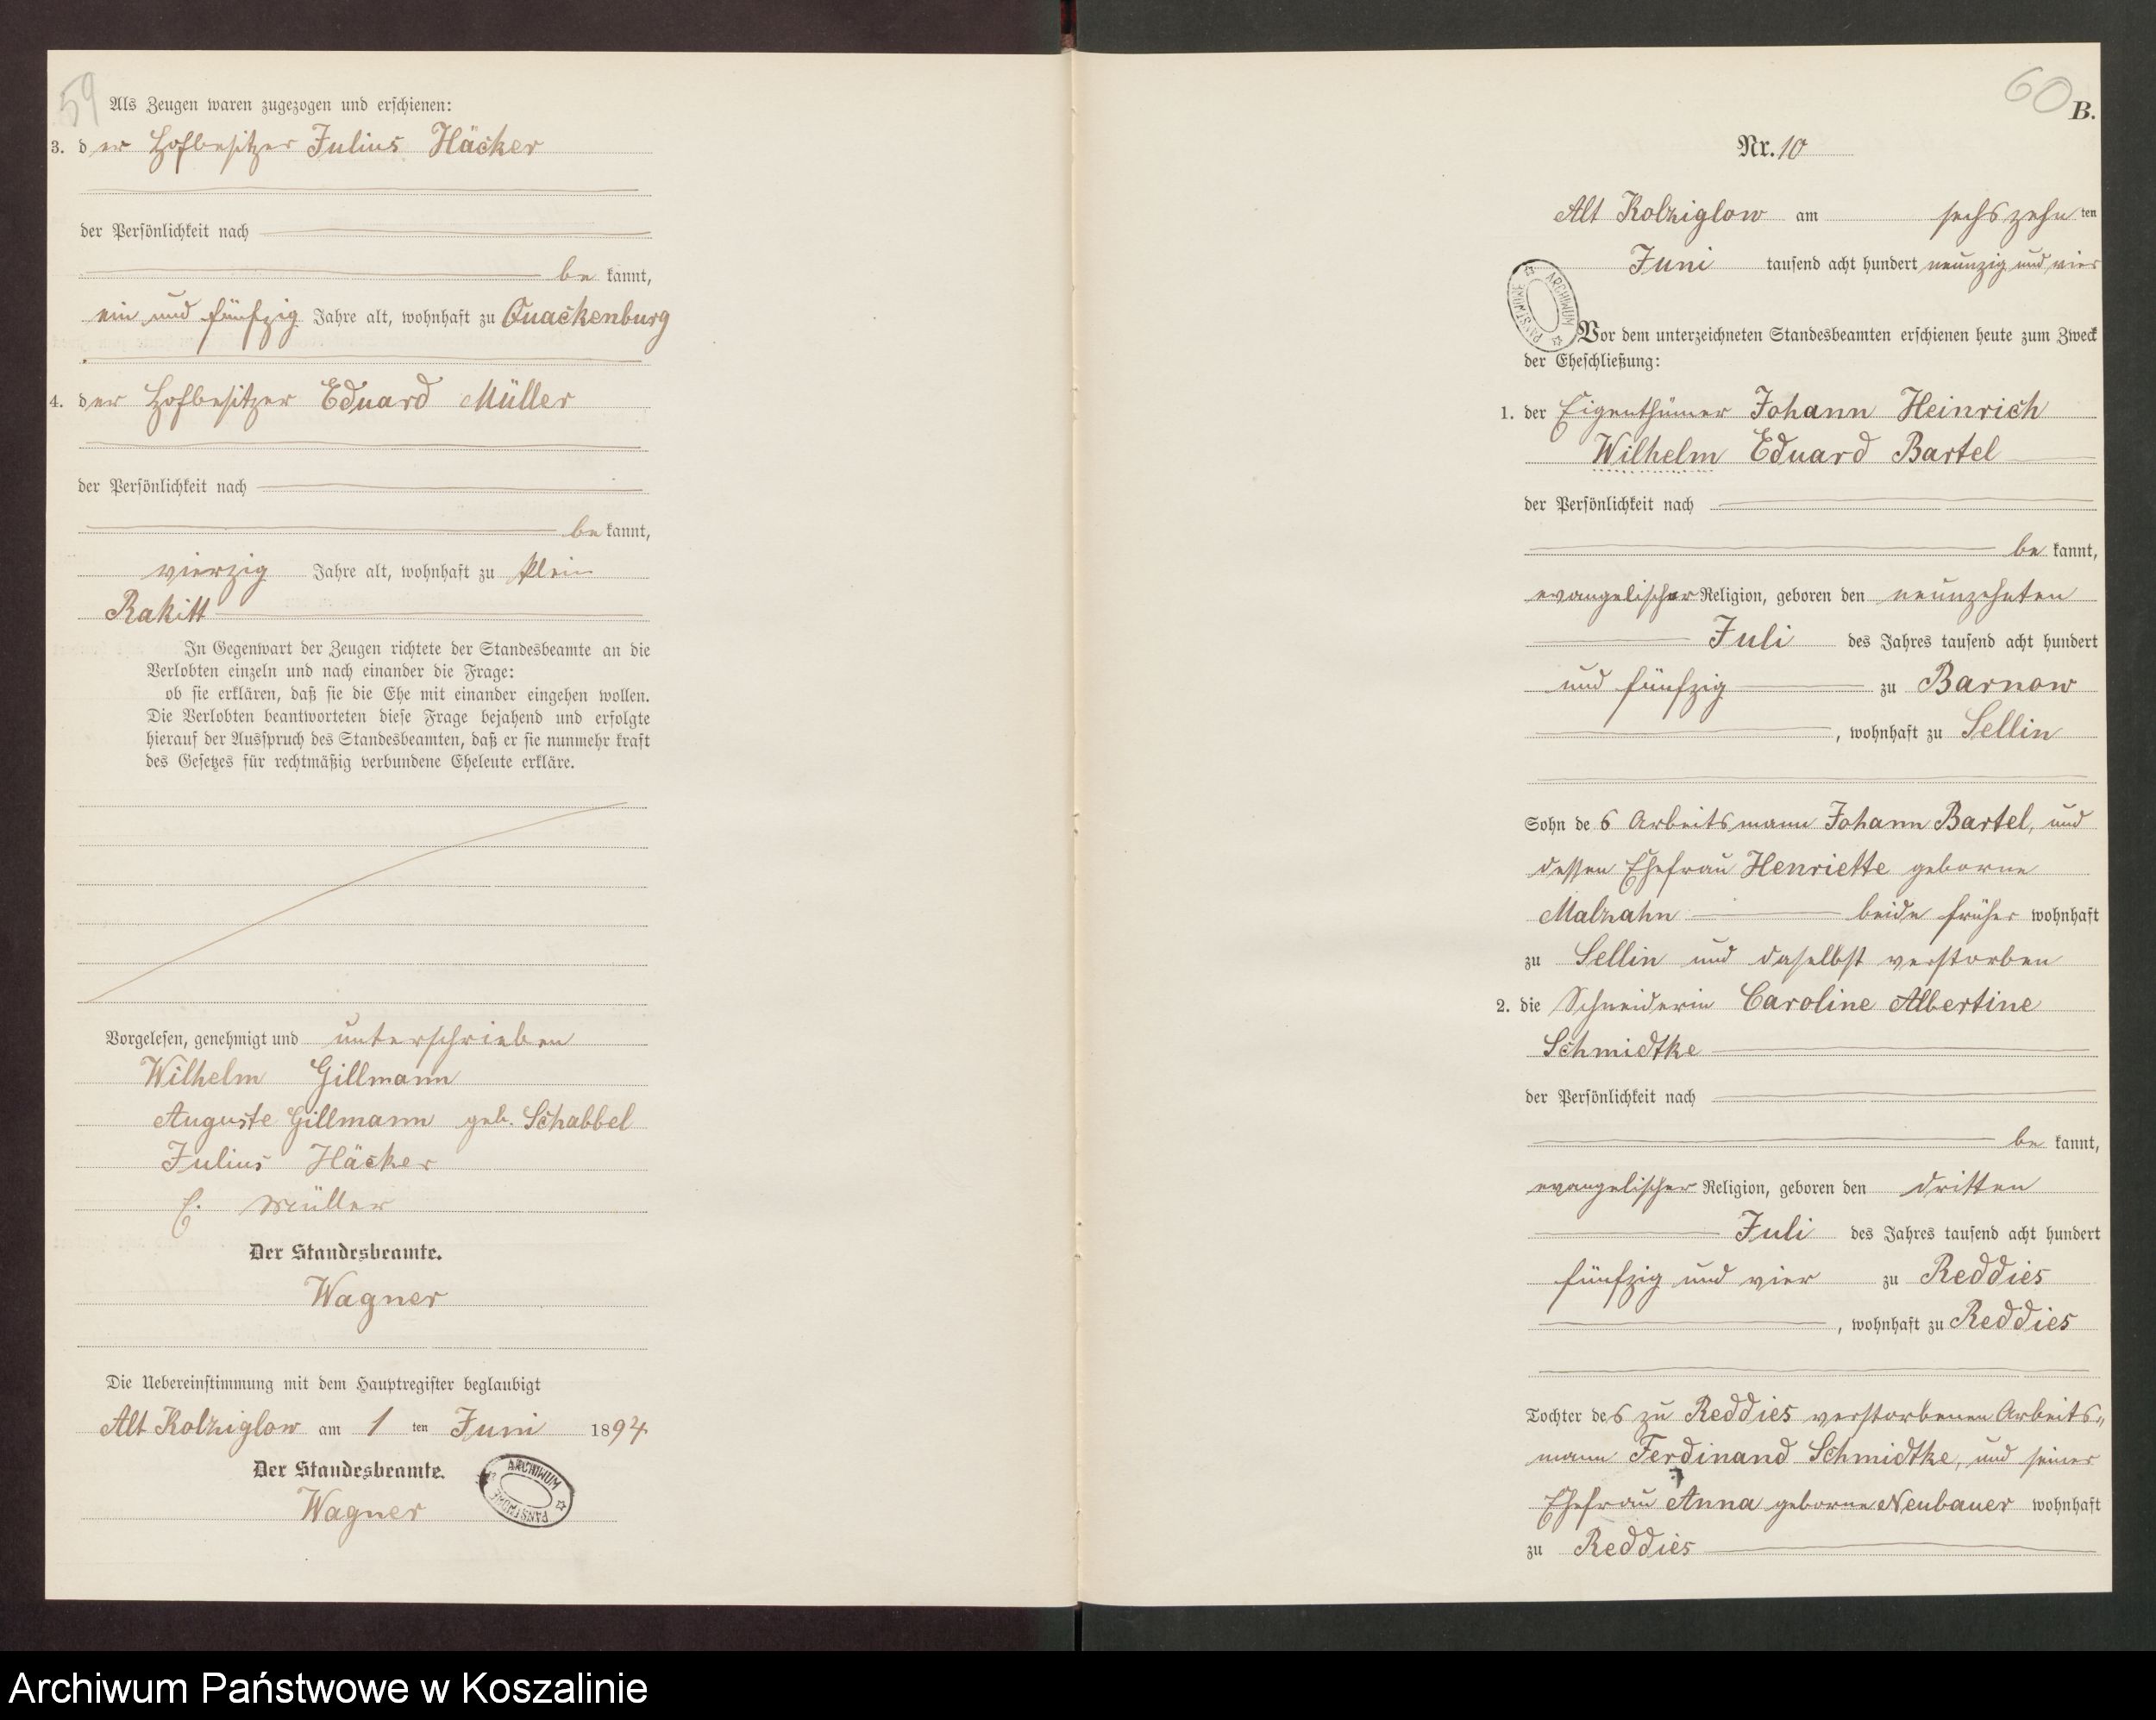 59
Als Zeugen waren zugezogen und erschienen:
3. der Hofbesitzer Julius Häcker
der Persönlichkeit nach
be kannt,
ein und fünfzig Jahre alt, wohnhaft zu Quackenburg
4. der Hofbesitzer Eduard Müller
der Persönlichkeit nach
be kannt,
vierzig Jahre alt, wohnhaft zu Klein
Rakitt
In Gegenwart der Zeugen richtete der Standesbeamte an die
Verlobten einzeln und nach einander die Frage:
ob sie erklären, daß sie die Ehe mit einander eingehen wollen.
Die Verlobten beantworteten diese Frage bejahend und erfolgte
hierauf der Ausspruch des Standesbeamten, daß er sie nunmehr kraft
des Gesetzes für rechtmäßig verbundene Eheleute erkläre.
Vorgelesen, genehmigt und unterschrieben
Wilhelm Gillmann
Auguste Gillmann geb. Schabbel
Julius Häcker
E. Müller
Der Standesbeamte.
Wagner
Die Uebereinstimmung mit dem Hauptregister beglaubigt
Alt Kolziglow am 1 ten Juni 1894
Der Standesbeamte.
Wagner
ARCHIWUM PAŃSTWOWE
60
B.
Nr. 10
Alt Kolziglow am sechszehn ten
Juni tausend acht hundert neunzig und vier
ARCHIWUM PAŃSTWOWE
Vor dem unterzeichneten Standesbeamten erschienen heute zum Zweck
der Eheschließung:
1. der Eigenthümer Johann Heinrich
Wilhelm Eduard Bartel
der Persönlichkeit nach
be kannt,
evangelischer Religion, geboren den neunzehnten
Juli des Jahres tausend acht hundert
und fünfzig zu Barnow
, wohnhaft zu Sellin
Sohn des Arbeitsmann Johann Bartel, und
dessen Ehefrau Henriette geborne
Malzahn beide früher wohnhaft
zu Sellin und daselbst verstorben
2. die Schneiderin Caroline Albertine
Schmidtke
der Persönlichkeit nach
be kannt,
evangelischer Religion, geboren den dritten
Juli des Jahres tausend acht hundert
fünfzig und vier zu Reddies
, wohnhaft zu Reddies
Tochter des zu Reddies verstorbenen Arbeits„
mann Ferdinand Schmidtke, und seiner
Ehefrau Anna geborne Neubauer wohnhaft
zu Reddies
Archiwum Państwowe w Koszalinie